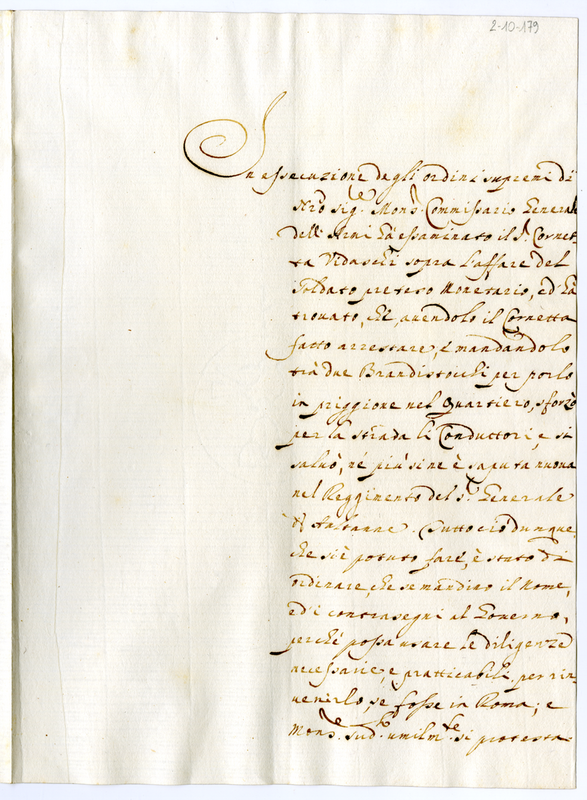 2-10-179
In essecuzione degli ordini supremi di
Nrõ Sig.re Mons.r Commissario General
dell'Armi hà essaminato il S.r Cornet
ta Vidaschi sopra l'affare del
Soldato preteso Monetario, ed hà
trovato, che, avendolo il Cornetta
fatto arrestare, e mandandolo
trà due Brandistocchi per porlo
in priggione nel Quartiero, sforzò
per la strada li Conduttori, e si
salvò, né più si ne è saputa nuova
nel Reggimento del S.r Generale
Tutto ciò dunque,
che si è potuto fare, è stato di
ordinare, che se mandino il Nome,
ed i contrasegni al Governo,
perché possa usare le diligenze
necessarie, e pratticabili per rin
venirlo, se fosse in Roma; e
Mons.re Sud.o umilm.te si protesta